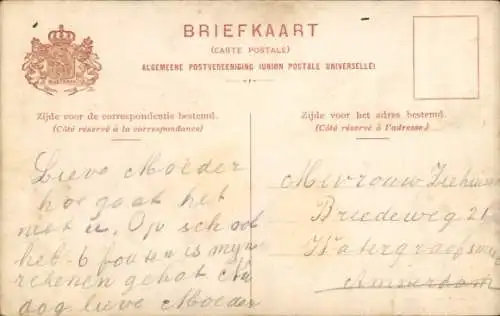 BRIEFKAART
(CARTE POSTALE)
ALGEMEENE POSTVEREENIGING (UNION POSTALE UNIVERSELLE)
Zijde voor de correspondentie bestemd.
(Côté réservé à la correspondance)
Zijde voor het adres bestemd.
(Côté réservé à l'adresse.)
Lieve Moeder
hoe gaat het
met u. Op school
heb 6 fouten is mijn
rekenen gehat
dag lieve Moeder
Mevrouw
Breedeweg 21
Watergraafsmeer
Amsterdam